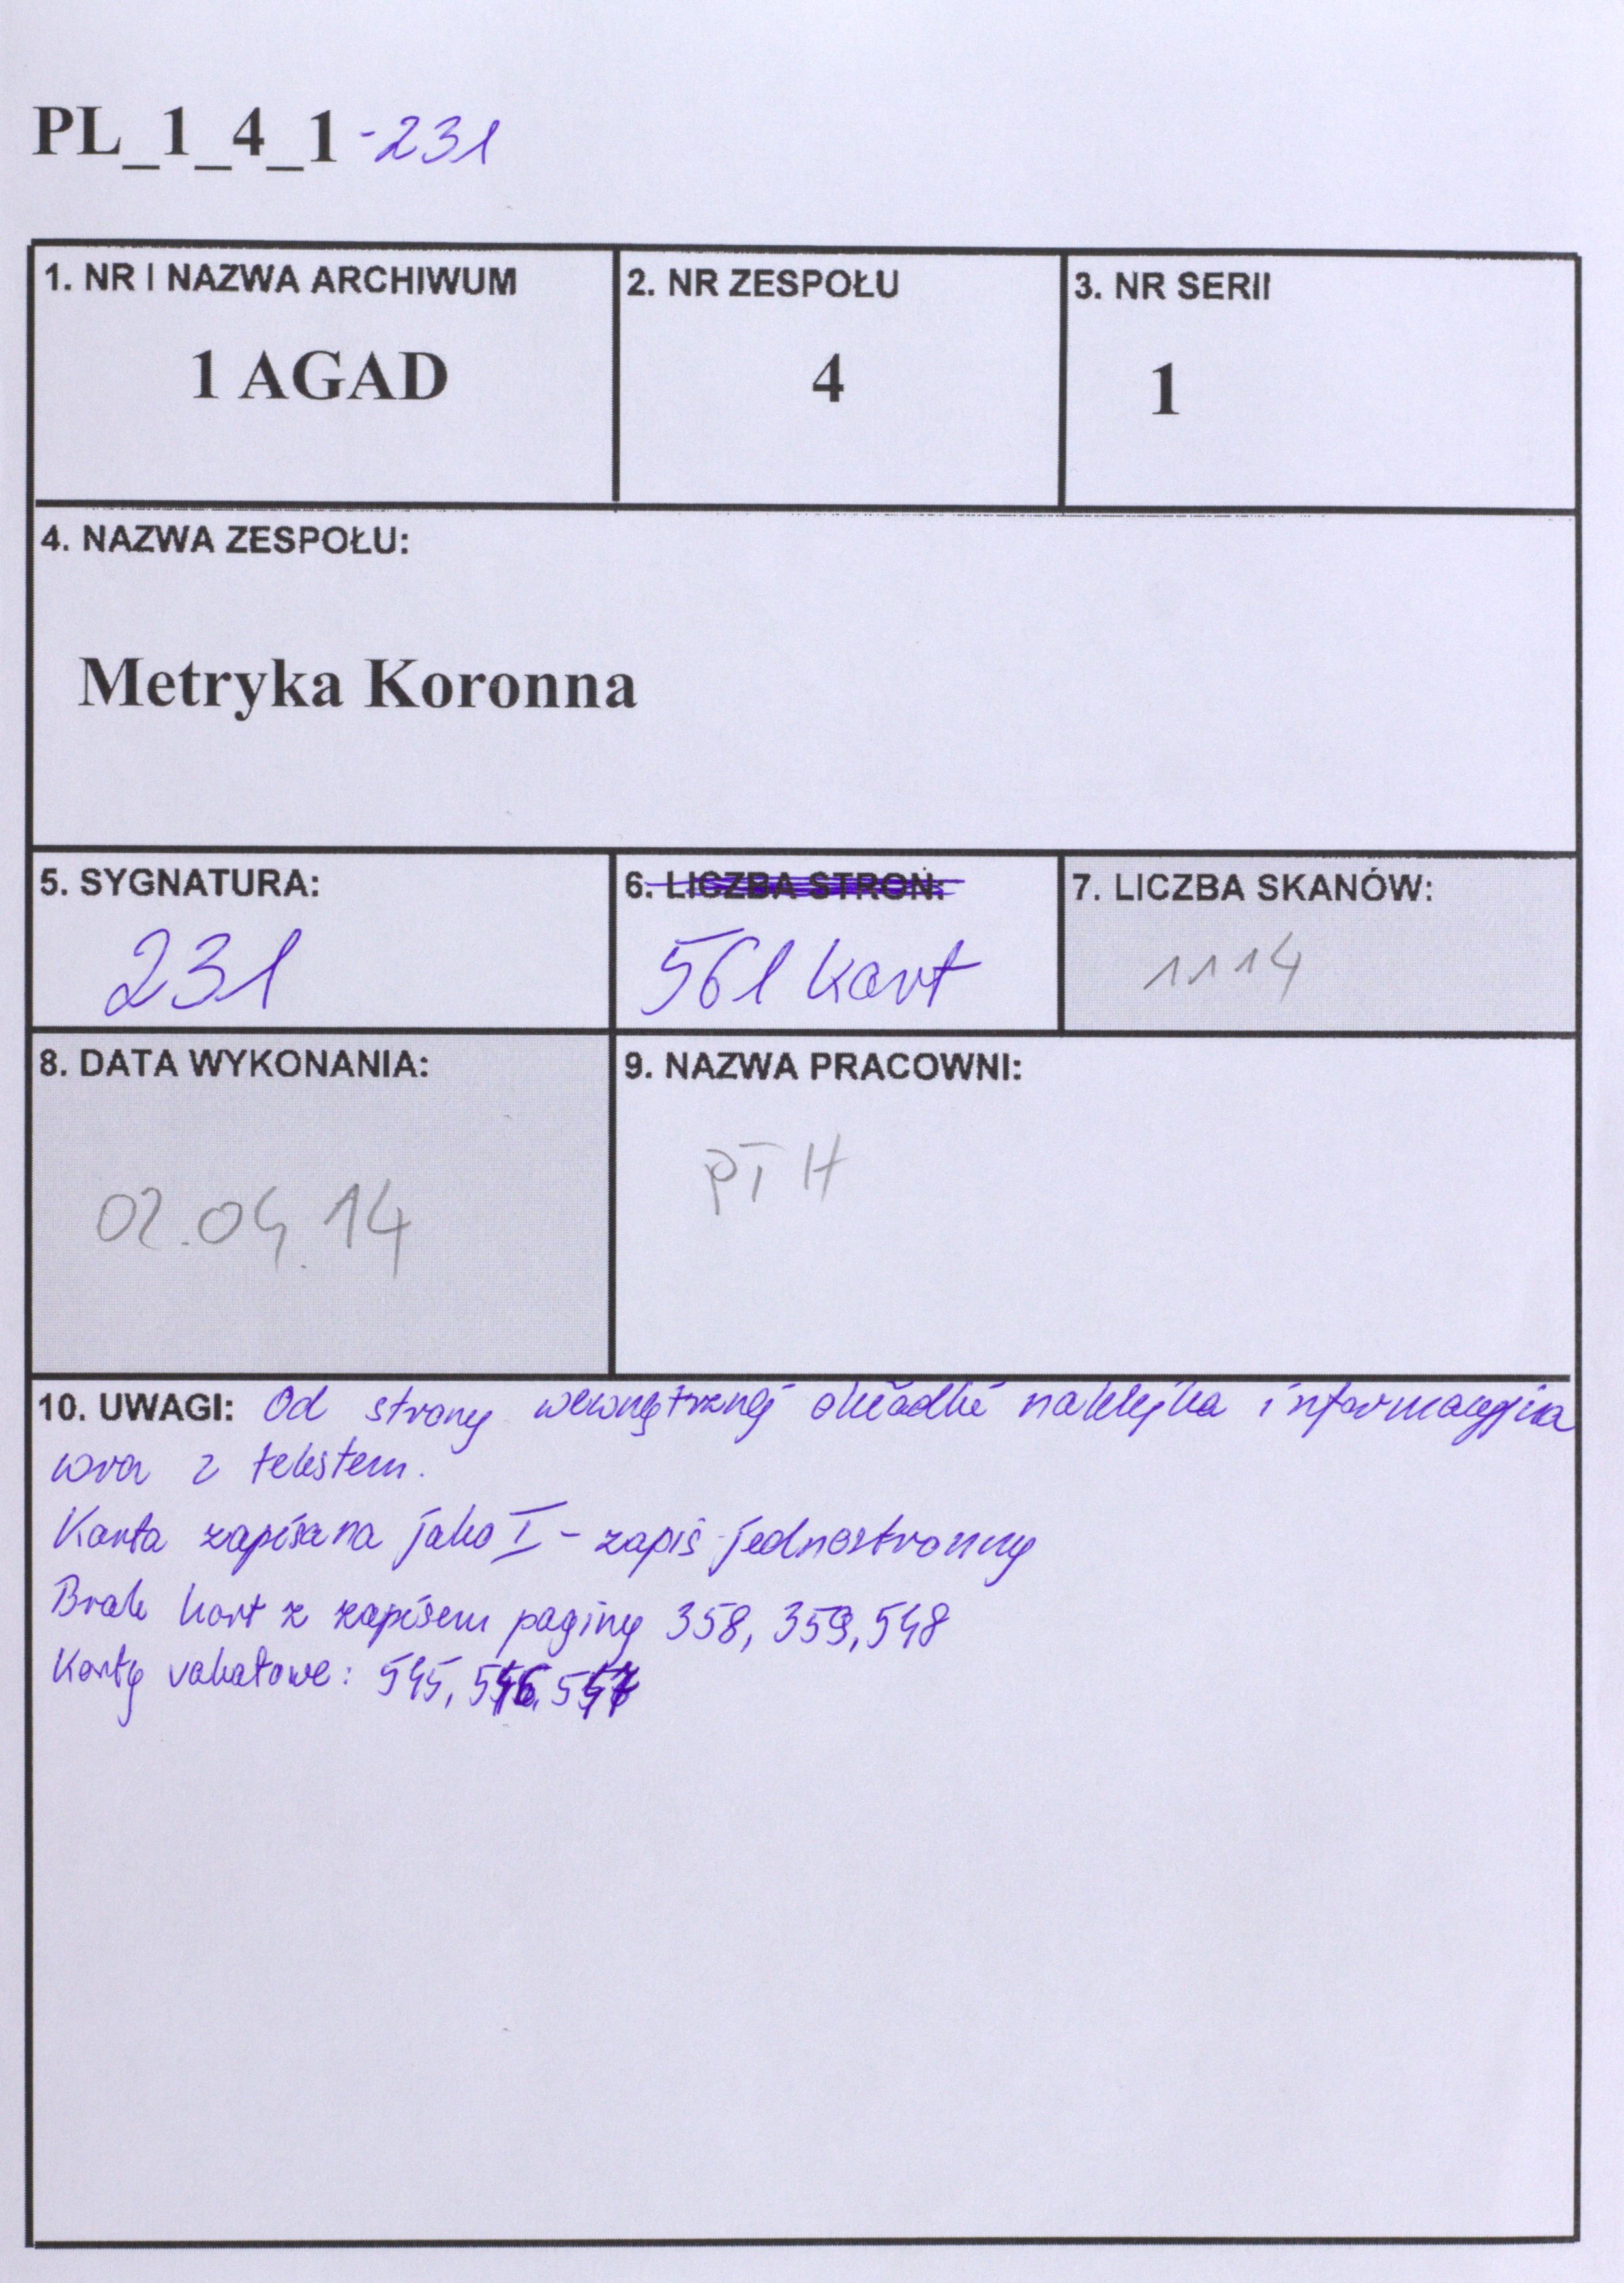 PL_1_4_1-231
1. NR I NAZWA ARCHIWUM
1 AGAD
2. NR ZESPOŁU
4
3. NR SERII
1
4. NAZWA ZESPOŁU:
Metryka Koronna
5. SYGNATURA:
231
6. LICZBA STRON:
561 kart
7. LICZBA SKANÓW:
1114
8. DATA WYKONANIA:
02.04.14
9. NAZWA PRACOWNI:
PTH
10. UWAGI: Od strony wewnętrznej okładki naklejka informacyjna
wraz z tekstem.
Karta zapisana jako I - zapis jednostronny
Brak kart z zapisem paginy 358, 359, 548
Karty vakatowe: 545, 546, 547